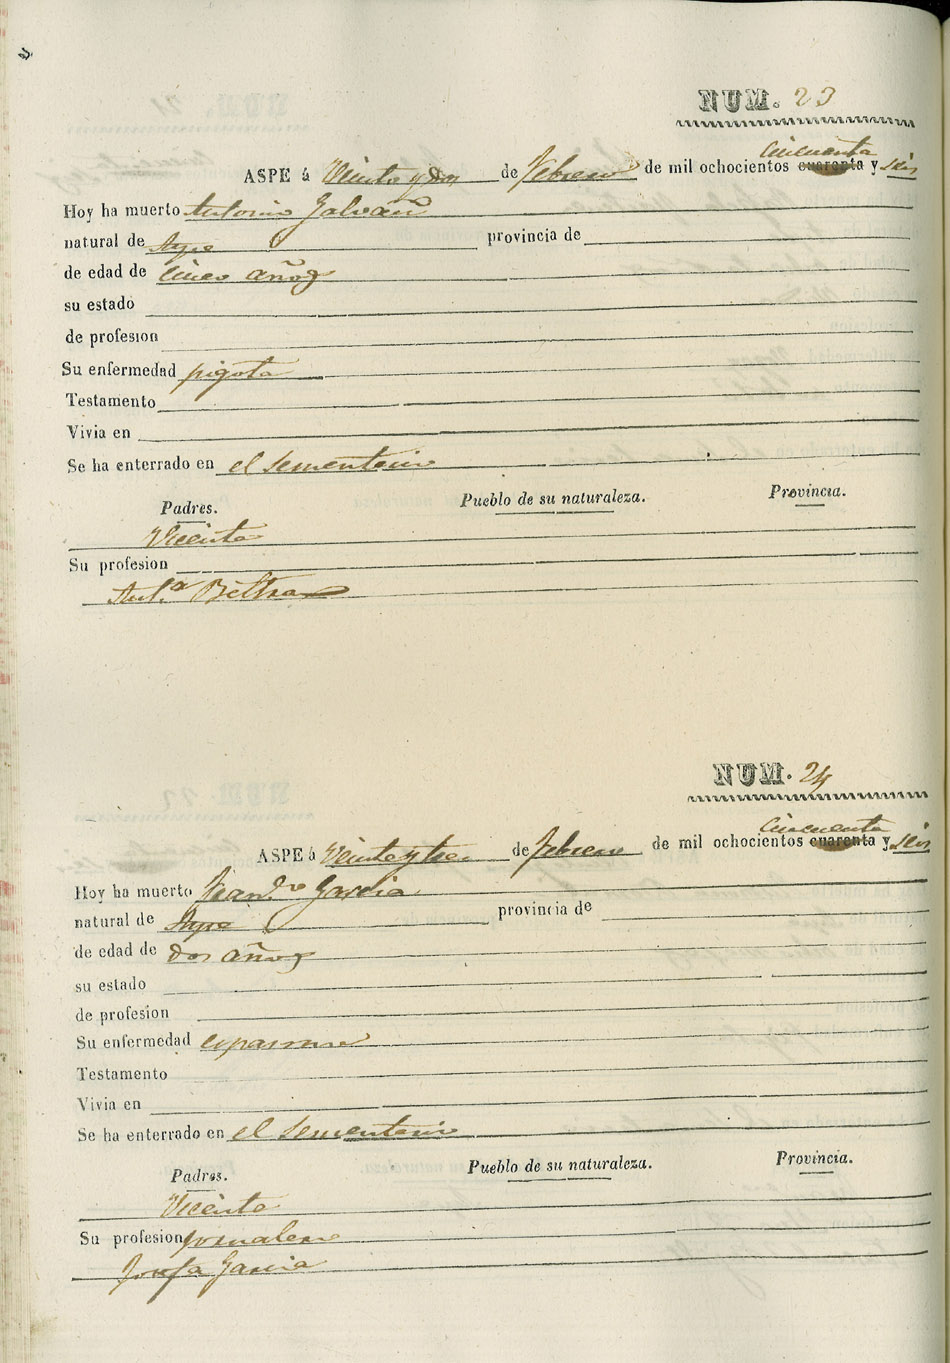 NUM. 23
cincuenta
ASPE á Veinte y dos de febrero de mil ochocientos cuarenta y seis
Hoy ha muerto Antonio Galvañ
natural de Aspe provincia de
de edad de cinco años
su estado
de profesion
Su enfermedad pigota
Testamento
Vivia en
Se ha enterrado en el sementerio
Padres. Pueblo de su naturaleza. Provincia.
Vicente
Su profesion
Ant.ª Beltra
NUM. 24
cincuenta
ASPE á Veinte y tres de febrero de mil ochocientos cuarenta y seis
Hoy ha muerto Garcia
natural de Aspe provincia de
de edad de dos años
su estado
de profesion
Su enfermedad
Testamento
Vivia en
Se ha enterrado en el sementerio
Padres. Pueblo de su naturaleza. Provincia.
Vicente
Su profesion jornalero
Josefa Garcia